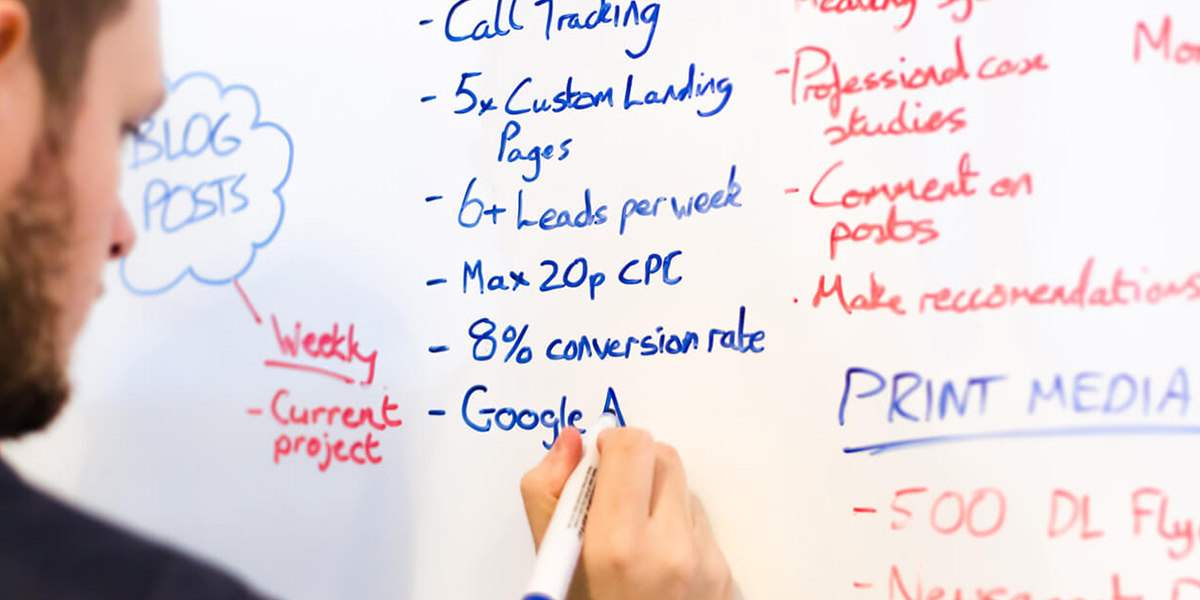 BLOG
POSTS
Weekly
- Current
project
- Call Tracking
- 5x Custom Landing
Pages
- 6+ Leads per week
- Max 20p CPC
- 8% conversion rate
- Google A
- Professional case
studies
- Comment on
posts
. Make reccomendations
PRINT MEDIA
- 500 DL